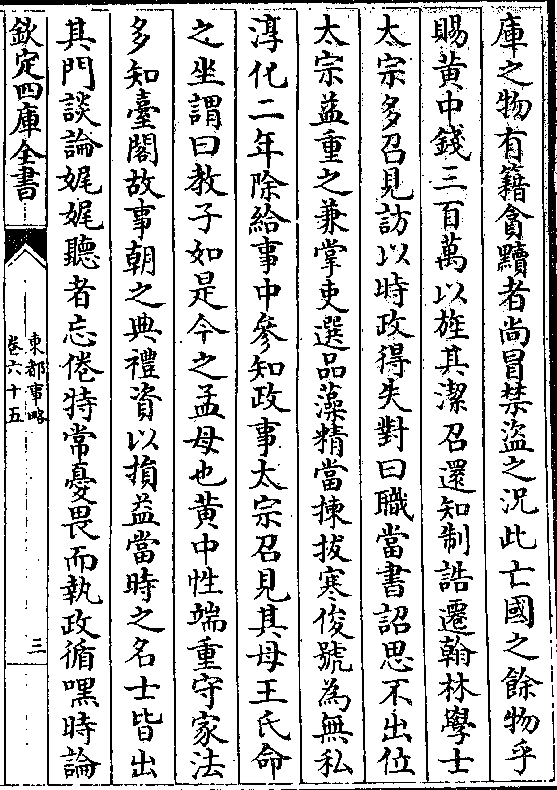 庫之物有籍貪黷者尚冒禁盜之況此亡國之餘物乎
賜黃中錢三百萬以旌其潔召還知制誥遷翰林學士
太宗多召見訪以時政得失對曰職當書詔思不出位
太宗益重之兼掌吏選品藻精當揀拔寒俊號為無私
淳化二年除給事中參知政事太宗召見其母王氏命
之坐謂曰教子如是今之孟母也黃中性端重守家法
多知臺閣故事朝之典禮資以損益當時之名士皆出
其門談論娓娓聽者忘倦特常憂畏而執政循嘿時論
欽定四庫全書
東都事略
卷六十五
三